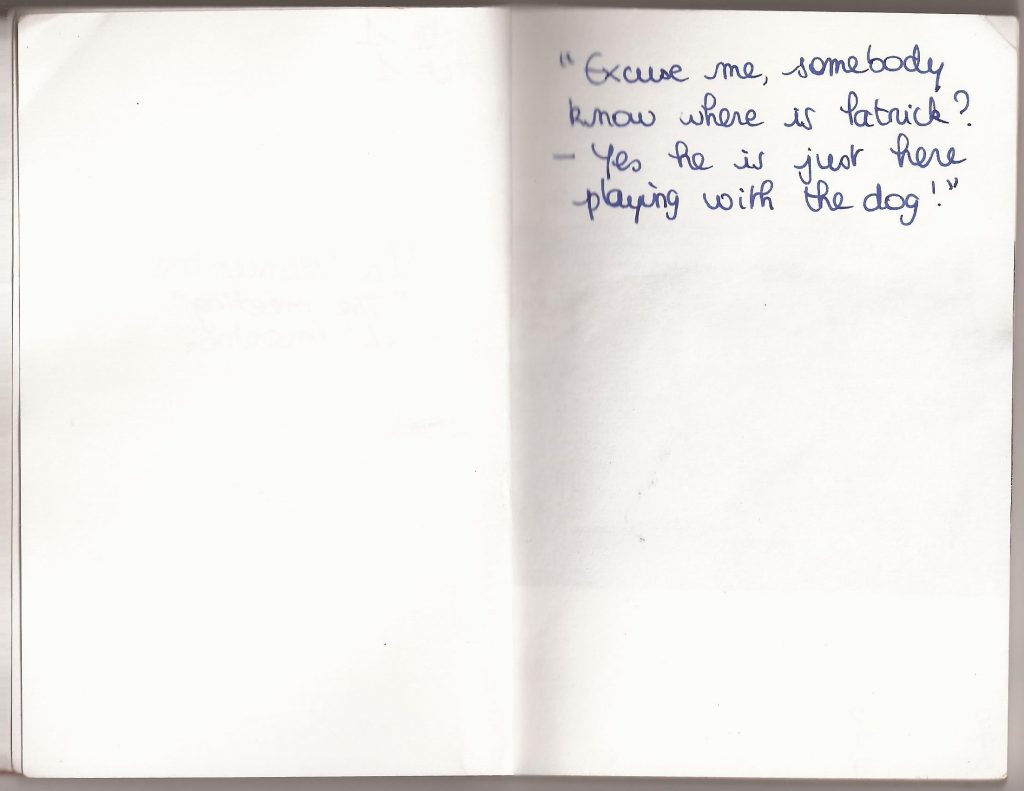 "Excuse me, somebody
know where is Patrick?
- Yes he is just here
playing with the dog!"